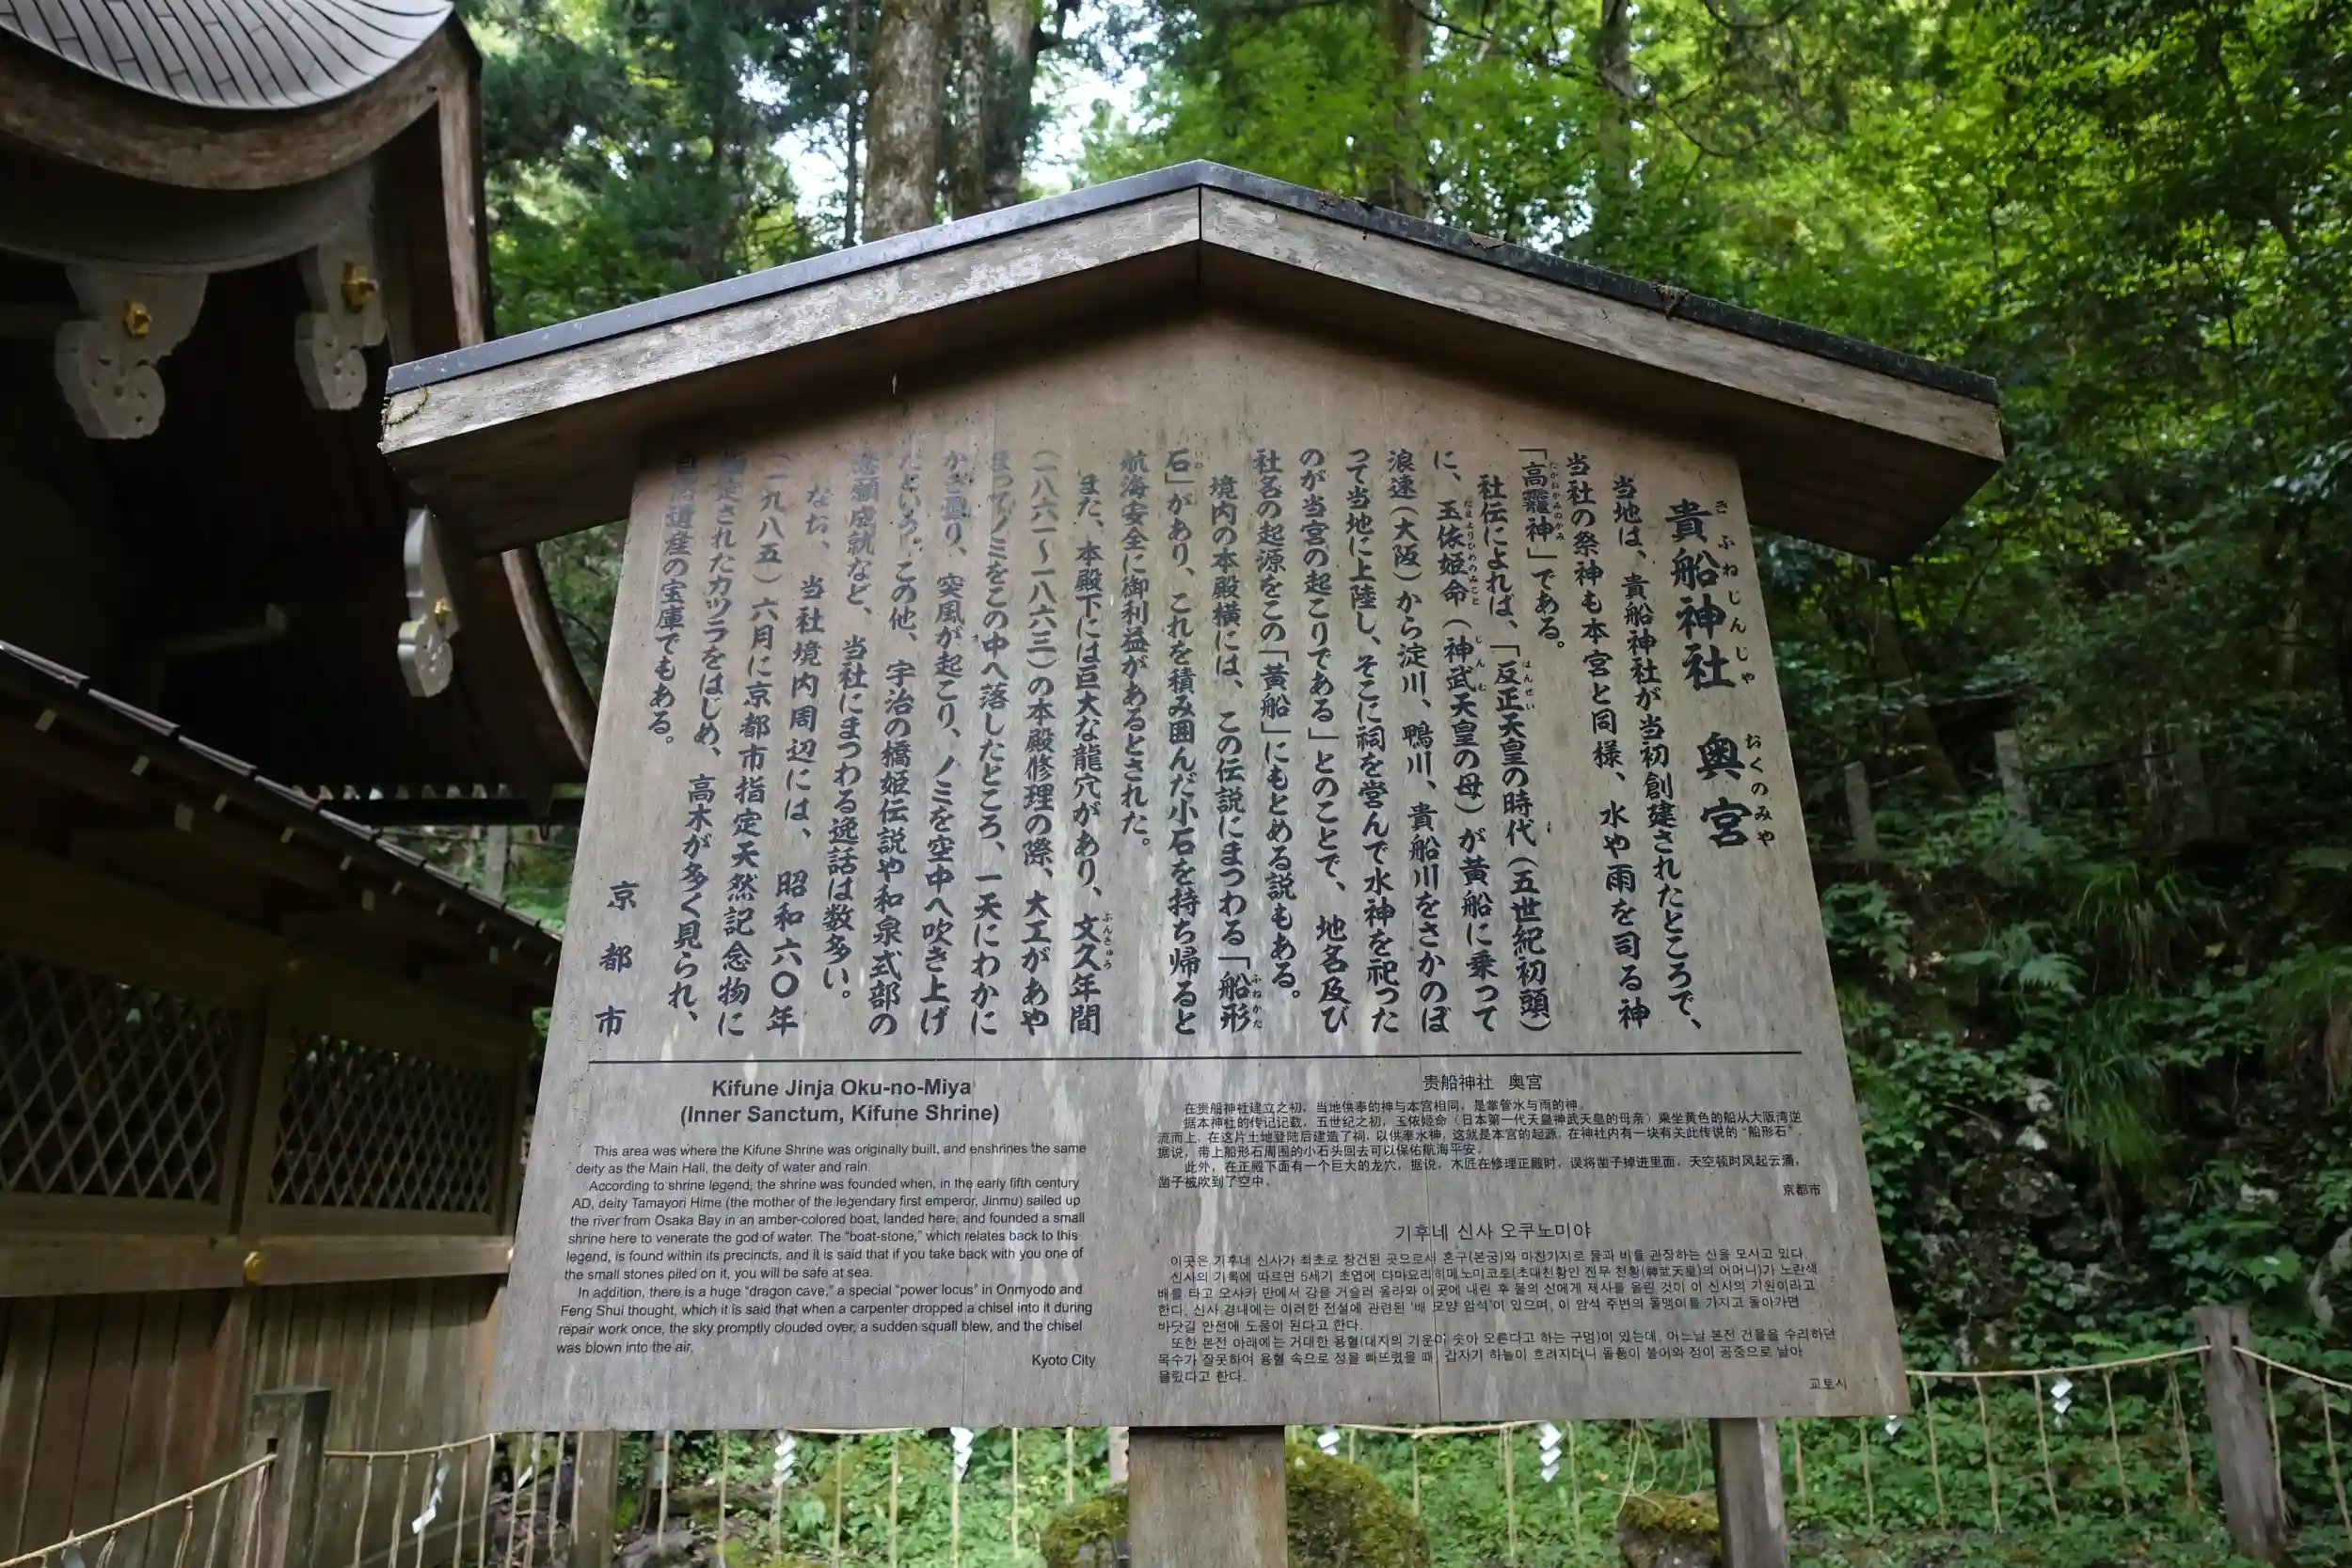 貴船神社 奥宮
きふねじんじゃ おくのみや
当地は、貴船神社が当初創建されたところで、
当社の祭神も本宮と同様、水や雨を司る神
「高龗神」である。
たかおかみのかみ
社伝によれば、「反正天皇の時代(五世紀初頭)
はんぜい
に、玉依姫命(神武天皇の母)が黄船に乗って
たまよりひめのみこと じんむ
浪速(大阪)から淀川、鴨川、貴船川をさかのぼ
って当地に上陸し、そこに祠を営んで水神を祀った
のが当宮の起こりである」とのことで、地名及び
社名の起源をこの「黄船」にもとめる説もある。
境内の本殿横には、この伝説にまつわる「船形
ふねがた
石」があり、これを積み囲んだ小石を持ち帰ると
いわ
航海安全に御利益があるとされた。
また、本殿下には巨大な龍穴があり、文久年間
ぶんきゅう
(一八六一〜一八六三)の本殿修理の際、大工があや
まってノミをこの中へ落したところ、一天にわかに
かき曇り、突風が起こり、ノミを空中へ吹き上げ
たという。この他、宇治の橋姫伝説や和泉式部の
恋願成就など、当社にまつわる逸話は数多い。
なお、当社境内周辺には、昭和六〇年
(一九八五)六月に京都市指定天然記念物に
指定されたカツラをはじめ、高木が多く見られ、
自然遺産の宝庫でもある。
京都市
Kifune Jinja Oku-no-Miya
(Inner Sanctum, Kifune Shrine)
This area was where the Kifune Shrine was originally built, and enshrines the same
deity as the Main Hall, the deity of water and rain.
According to shrine legend, the shrine was founded when, in the early fifth century
AD, deity Tamayori Hime (the mother of the legendary first emperor, Jinmu) sailed up
the river from Osaka Bay in an amber-colored boat, landed here, and founded a small
shrine here to venerate the god of water. The "boat-stone," which relates back to this
legend, is found within its precincts, and it is said that if you take back with you one of
the small stones piled on it, you will be safe at sea.
In addition, there is a huge "dragon cave," a special "power locus" in Onmyodo and
Feng Shui thought, which it is said that when a carpenter dropped a chisel into it during
repair work once, the sky promptly clouded over, a sudden squall blew, and the chisel
was blown into the air.
Kyoto City
贵船神社 奥宫
在贵船神社建立之初，当地供奉的神与本宫相同，是掌管水与雨的神。
据本神社的传记记载，五世纪之初，玉依姬命（日本第一代天皇神武天皇的母亲）乘坐黄色的船从大阪湾逆
流而上，在这片土地登陆后建造了祠，以供奉水神，这就是本宫的起源，在神社内有一块有关此传说的“船形石”，
据说，带上船形石周围的小石头回去可以保佑航海平安。
此外，在正殿下面有一个巨大的龙穴，据说，木匠在修理正殿时，误将凿子掉进里面，天空顿时风起云涌，
凿子被吹到了空中。
京都市
기후네 신사 오쿠노미야
이곳은 기후네 신사가 최초로 창건된 곳으로서 혼구(본궁)와 마찬가지로 물과 비를 관장하는 신을 모시고 있다.
신사의 기록에 따르면 5세기 초엽에 다마요리히메노미코토(초대천황인 진무 천황(神武天皇)의 어머니)가 노란색
배를 타고 오사카 만에서 강을 거슬러 올라와 이곳에 내린 후 물의 신에게 제사를 올린 것이 이 신사의 기원이라고
한다. 신사 경내에는 이러한 전설에 관련된 '배 모양 암석'이 있으며, 이 암석 주변의 돌맹이를 가지고 돌아가면
바닷길 안전에 도움이 된다고 한다.
또한 본전 아래에는 거대한 용혈(대지의 기운이 솟아 오른다고 하는 구멍)이 있는데, 어느날 본전 건물을 수리하던
목수가 잘못하여 용혈 속으로 정을 빠뜨렸을 때, 갑자기 하늘이 흐려지더니 돌풍이 불어와 정이 공중으로 날아
올랐다고 한다.
교토시